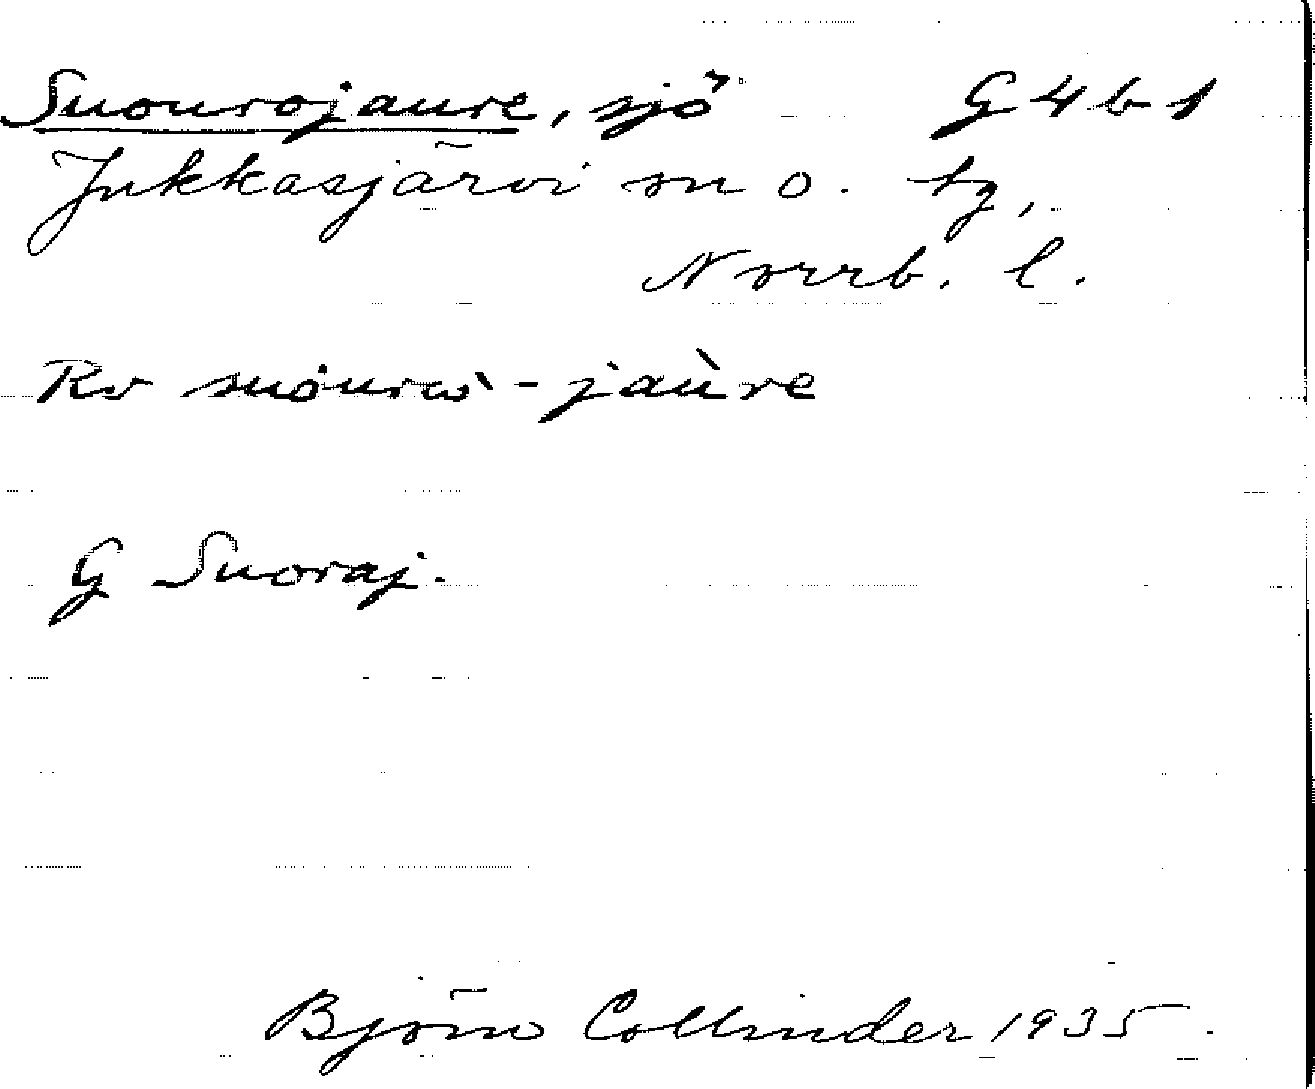 Suourojaure, sjö G 4 b 1
Jukkasjärvi sn o. tg,
Norrb. l.
Rv suourὼ-jaùre
G Suoraj.
Björn Collinder 1935.